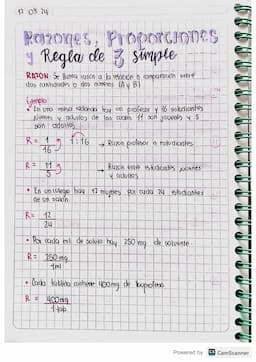 12 03 24
Razones, Proporciones
y Regla de 3 simple
RAZON Se llama razón a la relación o comparación entre
dos cantidades o dos números (A y B)
Ejemplo
• En una mesa redonda hay un profesor y 16 estudiantes
jóvenes y adultos de los cuales 11 son jóvenes y 5
son adultos.
R = 1
16
1:16 → Razón profesor a estudiantes
R = 11
5
→ Razón entre estudiantes jóvenes
y adultos
• En un colegio hay 12 mujeres por cada 24 estudiantes
de un salón.
R = 12
24
• Por cada ml de soluto hay 250 mg de solvente.
R = 250 mg
1ml
• Cada tableta contiene 400mg de ibuprofeno.
R = 400mg
1 tab
Powered by CS CamScanner